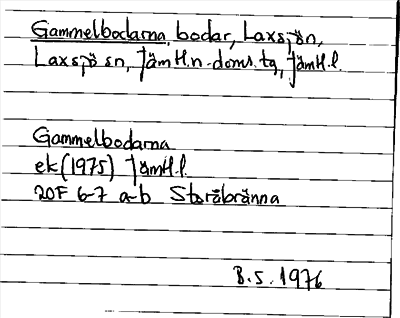 Gammelbodarna, bodar, Laxsjön,
Laxsjö sn, Jämtl.n. doms. tg, Jämtl.l.
Gammelbodarna
ek (1975) Jämtl.l.
20F 6-7 a-b Storåbränna
B.S. 1976